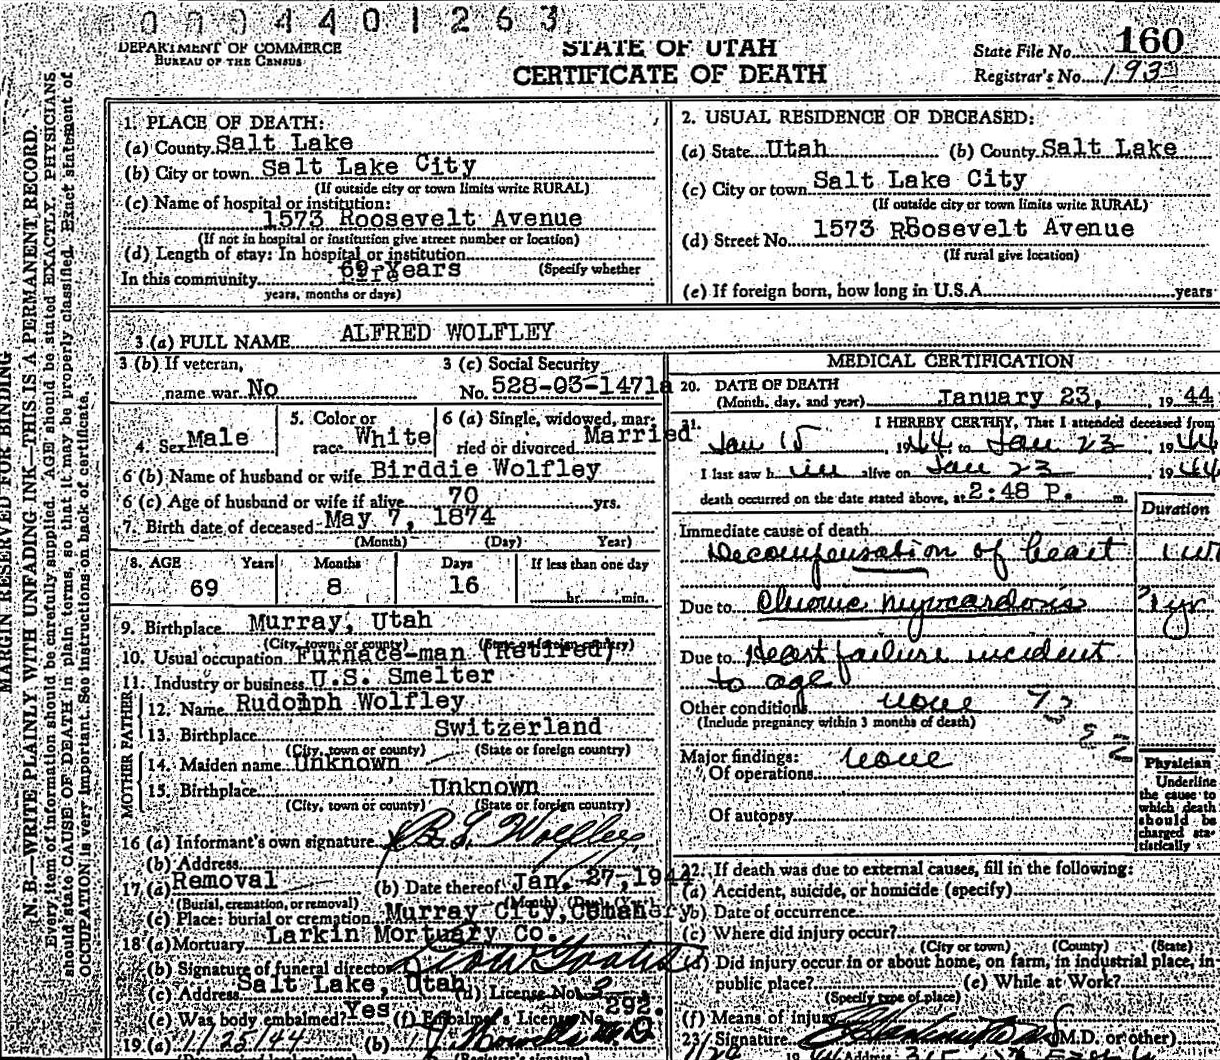 0004401263
DEPARTMENT OF COMMERCE
BUREAU OF THE CENSUS
STATE OF UTAH
CERTIFICATE OF DEATH
State File No. 160
Registrar's No. 193
MARGIN RESERVED FOR BINDING
N. B.—WRITE PLAINLY WITH UNFADING INK—THIS IS A PERMANENT RECORD.
Every item of information should be carefully supplied. AGE should be stated EXACTLY. PHYSICIANS
should state CAUSE OF DEATH in plain terms, so that it may be properly classified. Exact statement of
OCCUPATION is very important. See instructions on back of certificate.
1. PLACE OF DEATH:
(a) County Salt Lake
(b) City or town Salt Lake City
(If outside city or town limits write RURAL)
(c) Name of hospital or institution:
1573 Roosevelt Avenue
(If not in hospital or institution give street number or location)
(d) Length of stay: In hospital or institution
In this community 69 Years (Specify whether
years, months or days)
2. USUAL RESIDENCE OF DECEASED:
(a) State Utah (b) County Salt Lake
(c) City or town Salt Lake City
(If outside city or town limits write RURAL)
(d) Street No. 1573 Roosevelt Avenue
(If rural give location)
(e) If foreign born, how long in U.S.A. years
3 (a) FULL NAME ALFRED WOLFLEY
3 (b) If veteran,
name war No
3 (c) Social Security
No. 528-03-1471a
4. Sex Male
5. Color or
race White
6 (a) Single, widowed, mar-
ried or divorced Married
6 (b) Name of husband or wife Birddie Wolfley
6 (c) Age of husband or wife if alive 70 yrs.
7. Birth date of deceased May 7, 1874
(Month) (Day) Year)
8. AGE Years Months Days If less than one day
69 8 16 hr. min.
9. Birthplace Murray, Utah
(City, town or county) (State or foreign country)
10. Usual occupation Furnace-man (Retired)
11. Industry or business U.S. Smelter
FATHER
12. Name Rudolph Wolfley
13. Birthplace Switzerland
(City, town or county) (State or foreign country)
MOTHER
14. Maiden name Unknown
15. Birthplace Unknown
(City, town or county) (State or foreign country)
16 (a) Informant's own signature B. L. Wolfley
(b) Address
17. (a) Removal (b) Date thereof Jan. 27, 1944
(Burial, cremation, or removal) (Month) (Day) (Yr.)
(c) Place: burial or cremation Murray City, Cemetery
18 (a) Mortuary Larkin Mortuary Co.
(b) Signature of funeral director
(c) Address Salt Lake, Utah (d) License No.
(e) Was body embalmed? Yes (f) Embalmer's License No. 292
19. (a) 1/25/44 (b) M.D.
MEDICAL CERTIFICATION
20. DATE OF DEATH
(Month, day, and year) January 23, 19 44
21. I HEREBY CERTIFY, That I attended deceased from
Jan 15 1944 to Jan 23, 1944
I last saw him alive on Jan 23 1944
death occurred on the date stated above, at 2:48 P. m.
Duration
Immediate cause of death
Decompensation of heart 1 wk
Due to Chronic myocardosis ? 1 yr
Due to Heart failure incident
to age
Other conditions none
(Include pregnancy within 3 months of death)
Major findings: none
Of operations
Of autopsy
Physician
Underline
the cause to
which death
should be
charged sta-
tistically
22. If death was due to external causes, fill in the following:
(a) Accident, suicide, or homicide (specify)
(b) Date of occurrence
(c) Where did injury occur?
(City or town) (County) (State)
(d) Did injury occur in or about home, on farm, in industrial place, in
public place? (e) While at Work?
(Specify type of place)
(f) Means of injury
23. Signature (M.D. or other)
Address